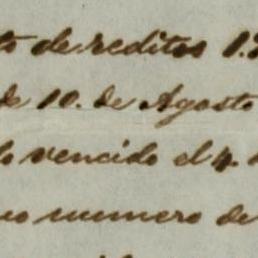 to de reditos 1.
de 10. de Agosto
lo vencido el 4.
numero de